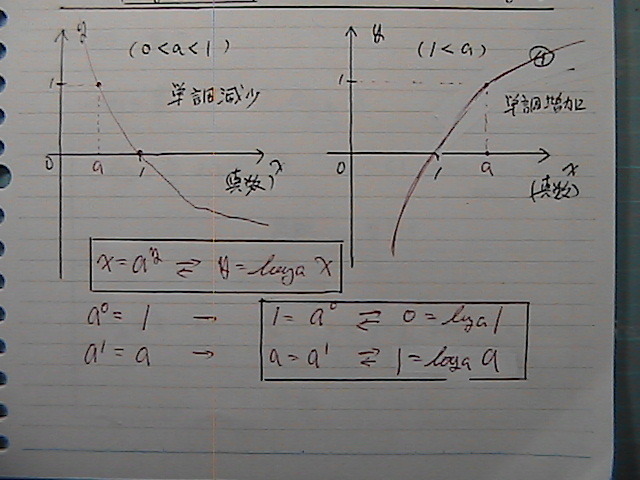 y (0<a<1)
1
単調減少
0 a 1 (真数) x
y (1<a)
1
単調増加
0 1 a x
(真数)
x = a^y ⇄ y = log_a x
a^0 = 1 → 1 = a^0 ⇄ 0 = log_a 1
a^1 = a → a = a^1 ⇄ 1 = log_a a